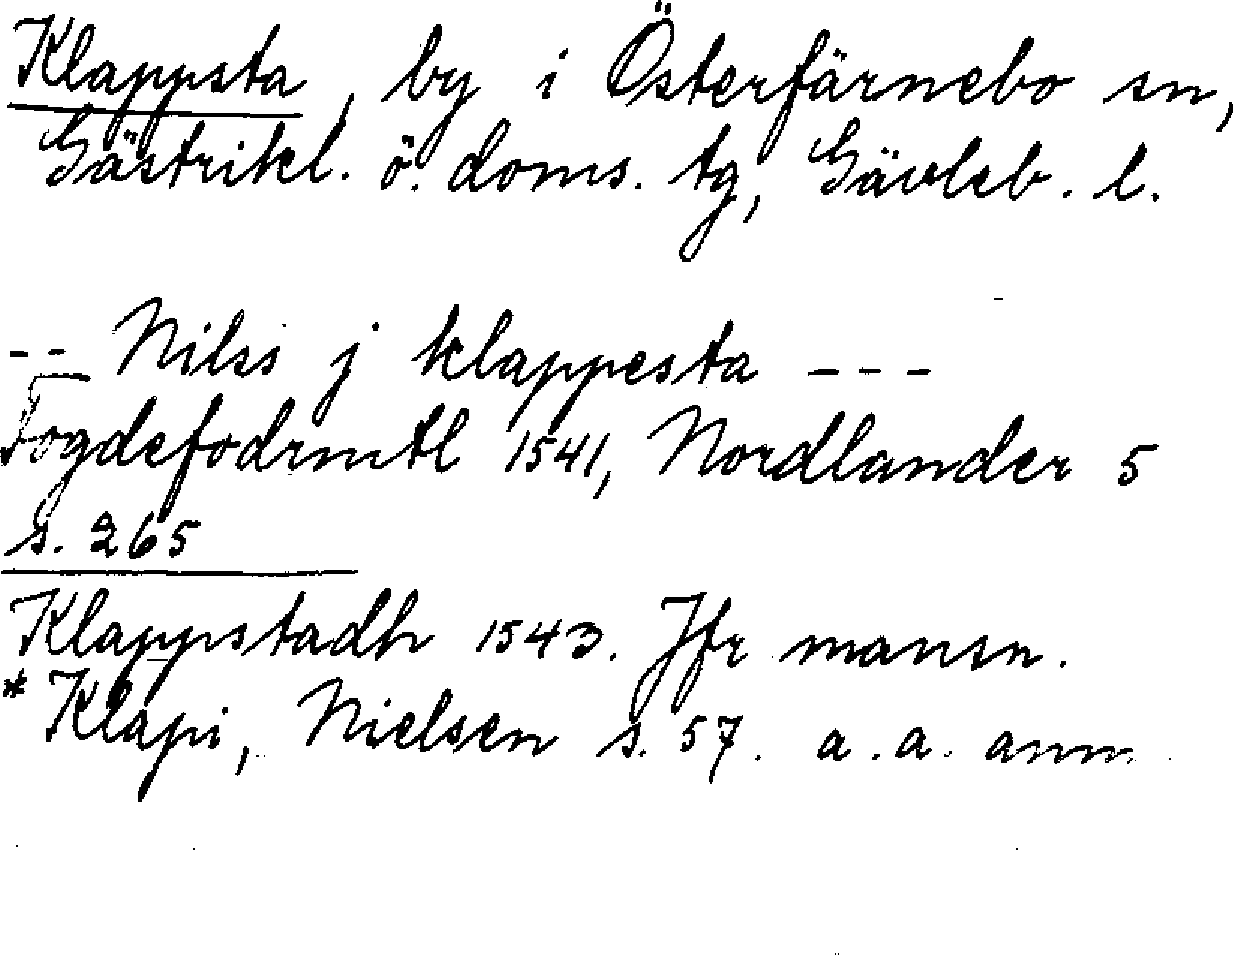 Klappsta, by i Österfärnebo sn,
Gästrikl. ö. doms. tg, Gävleb. l.
-- Nilss j klappesta ---
Fogdefodrmtl 1541, Nordlander 5
s. 265
Klappstadh 1543. Jfr mansn.
*Klapi, Nielsen s. 57. a. a. anm.